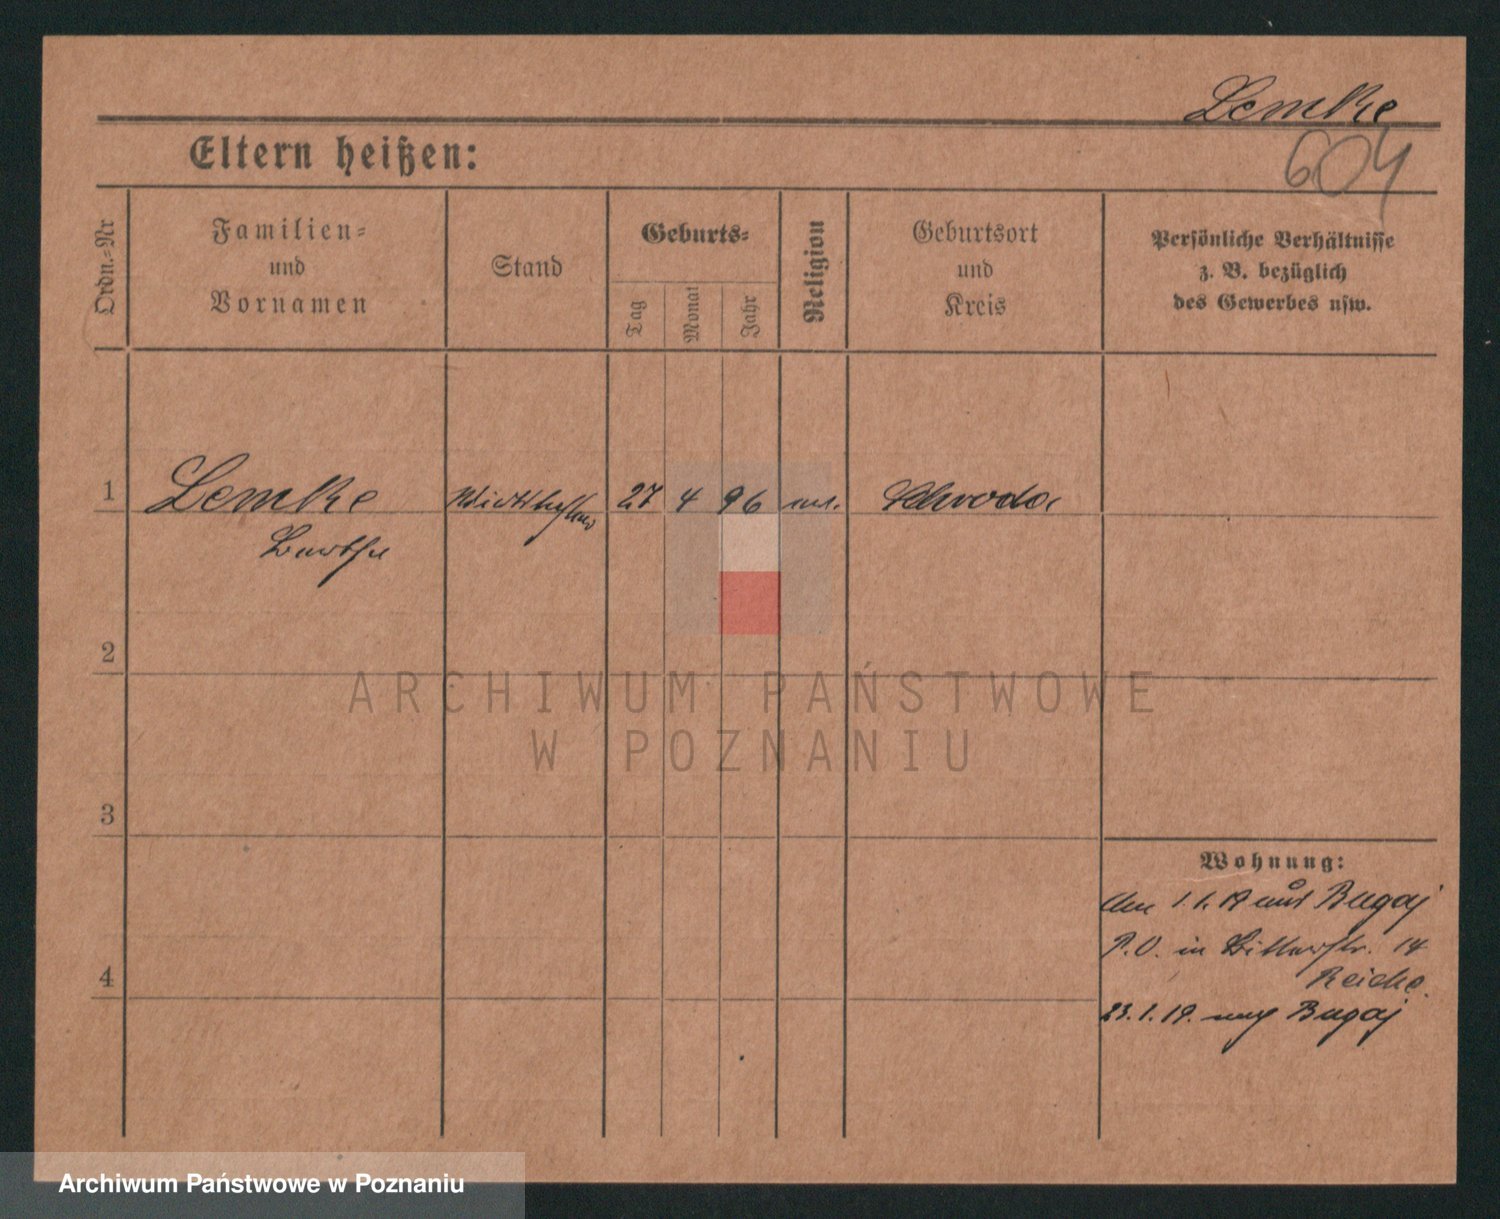 Lemke
604
Eltern heißen:
Ordn.-Nr
Familien-
und
Vornamen
Stand
Geburts-
Tag
Monat
Jahr
Religion
Geburtsort
und
Kreis
Persönliche Verhältnisse
z. B. bezüglich
des Gewerbes usw.
1
Lemke
27 4 96
Bertha
2
3
4
Wohnung:
1.1.19 aus Bugaj
P.O. in 14
Reiche
23.1.19. nach Bugaj
ARCHIWUM PAŃSTWOWE
W POZNANIU
Archiwum Państwowe w Poznaniu